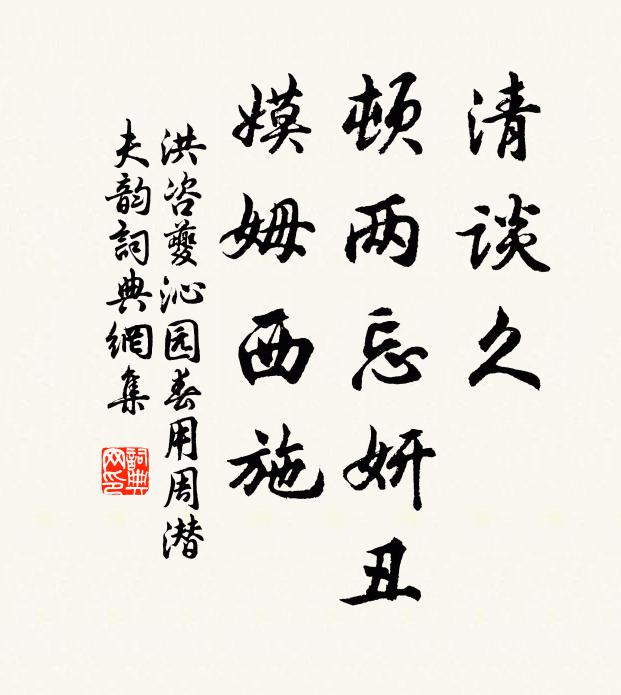 清谈久
顿两忘妍丑
嫫姆西施
洪咨夔沁园春用周潜
夫韵詞典網集
詞典
网印